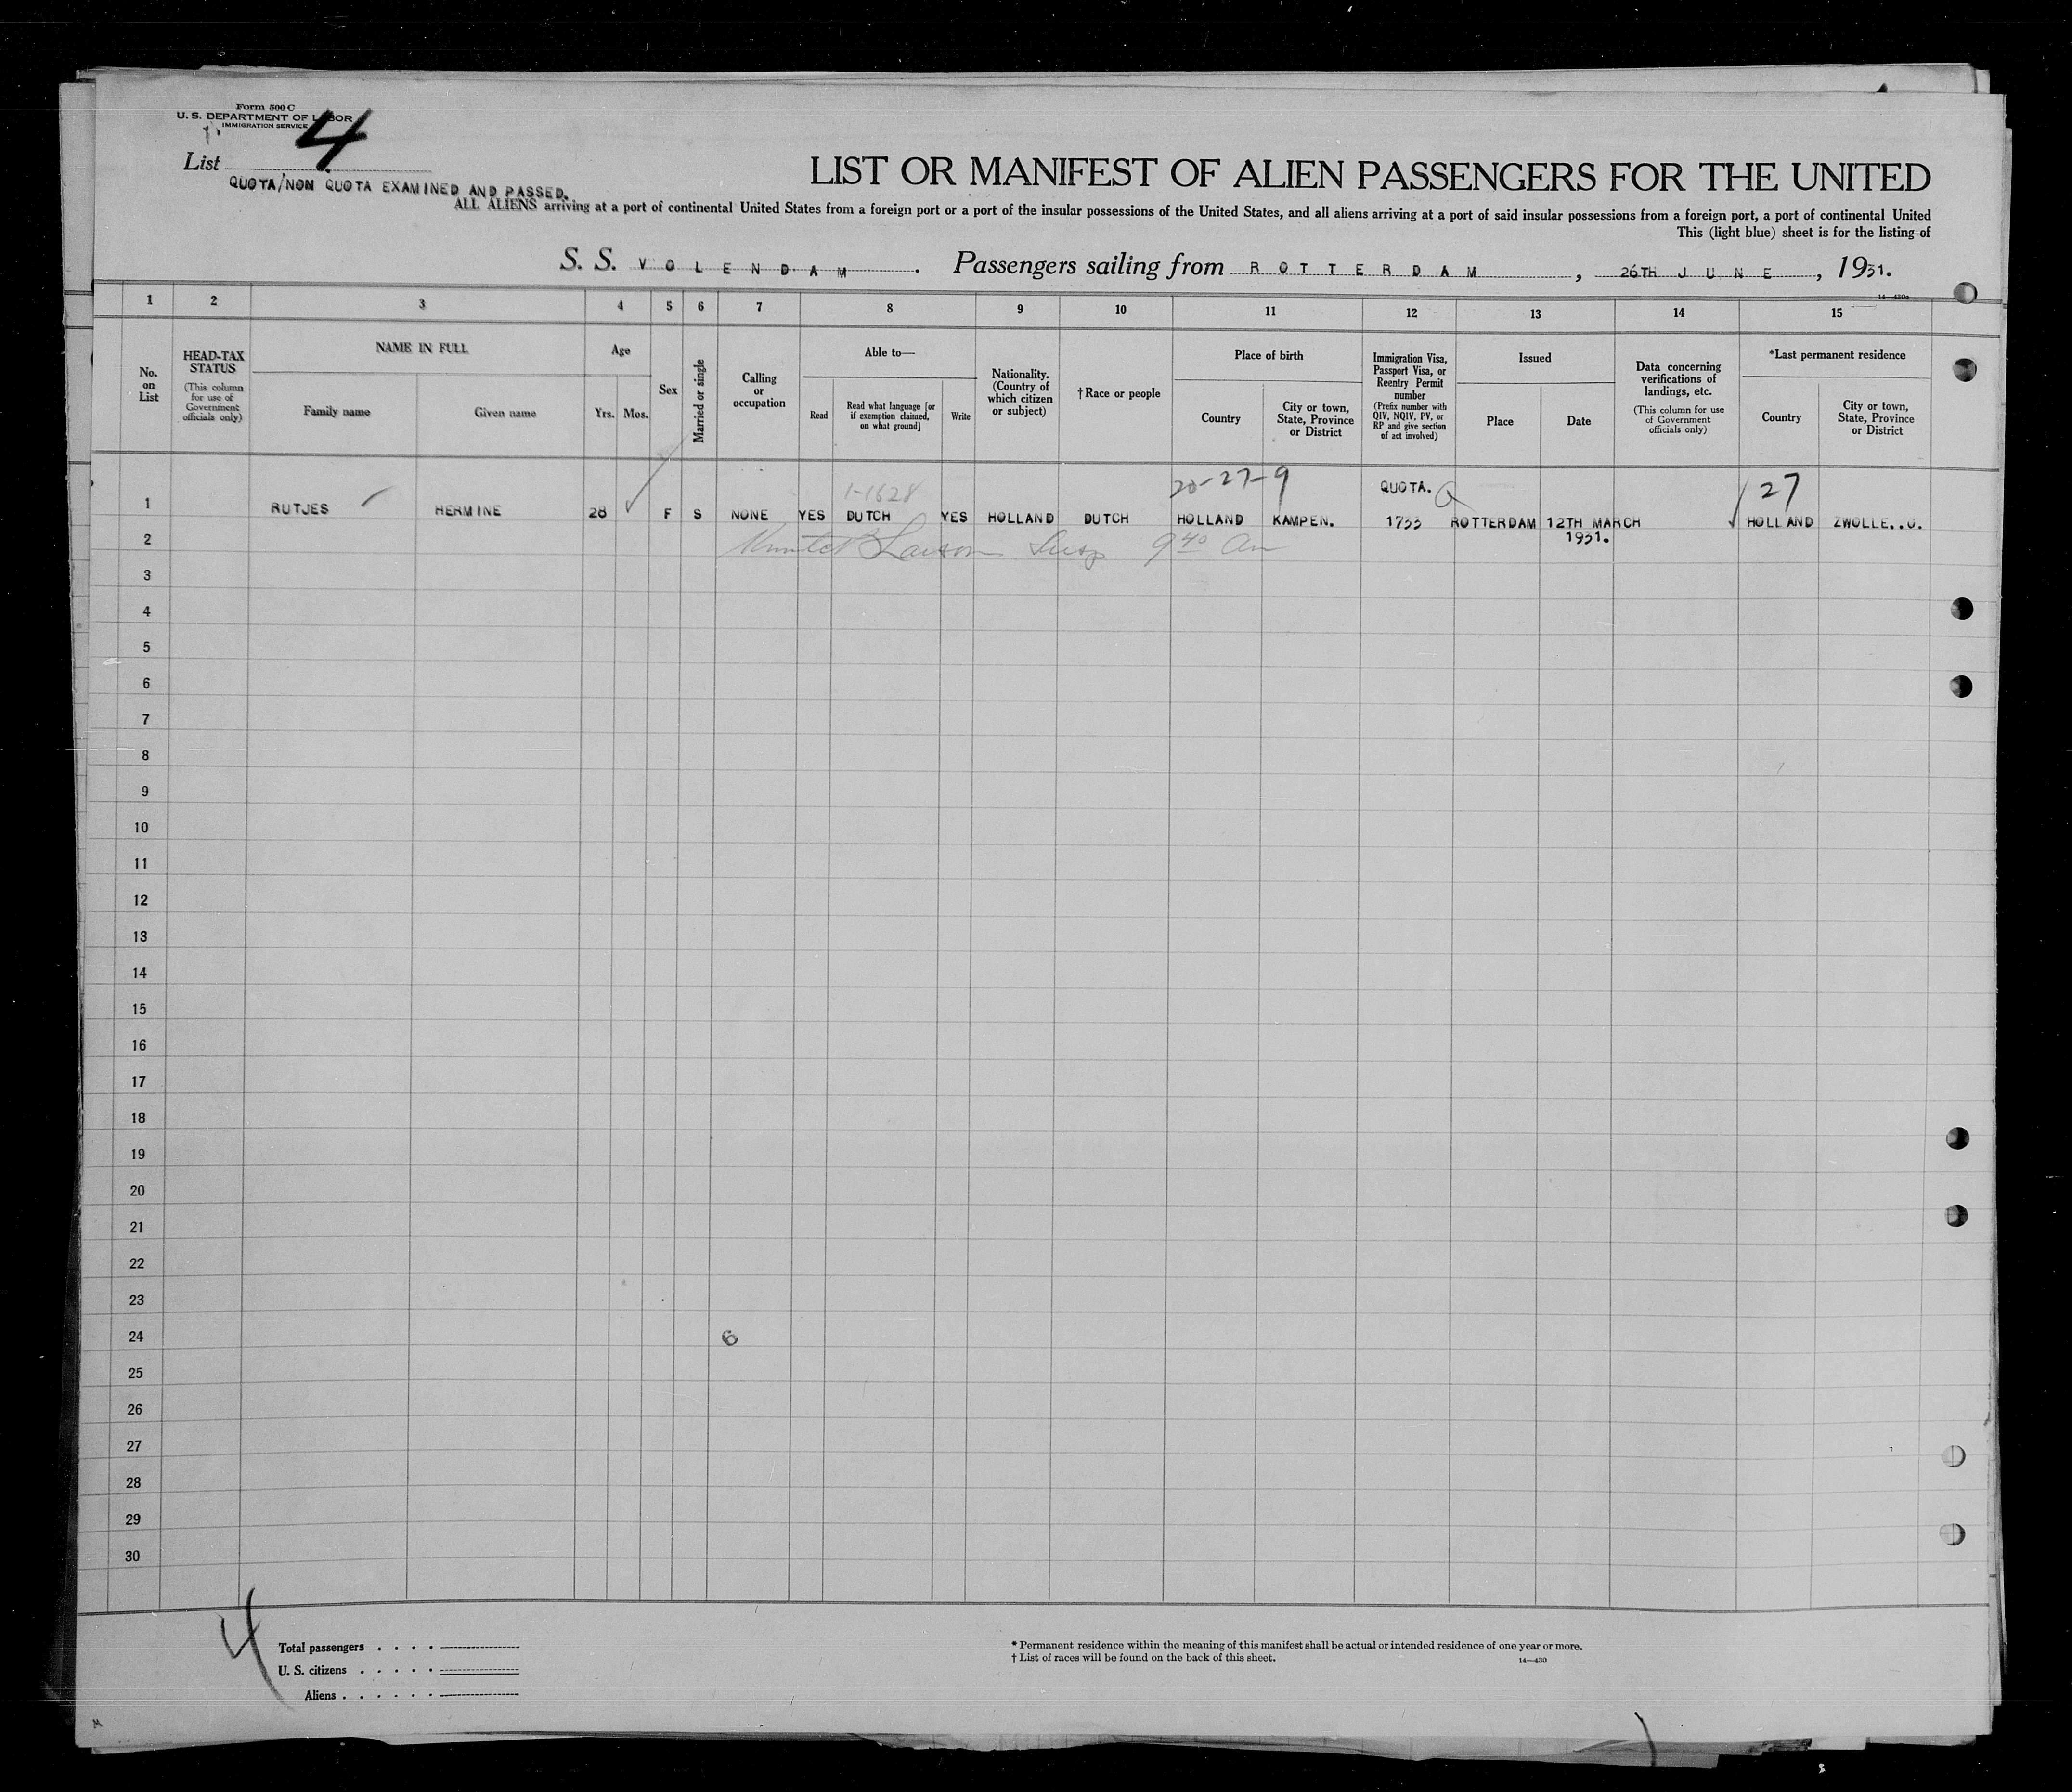 Form 500 C
U. S. DEPARTMENT OF LABOR
IMMIGRATION SERVICE
4
List
QUOTA/NON QUOTA EXAMINED AND PASSED.
LIST OR MANIFEST OF ALIEN PASSENGERS FOR THE UNITED
ALL ALIENS arriving at a port of continental United States from a foreign port or a port of the insular possessions of the United States, and all aliens arriving at a port of said insular possessions from a foreign port, a port of continental United
This (light blue) sheet is for the listing of
S. S. VOLENDAM. Passengers sailing from ROTTERDAM, 26TH JUNE, 1931.
14—430a
1 2 3 4 5 6 7 8 9 10 11 12 13 14 15
No. on List
HEAD-TAX STATUS
(This column for use of Government officials only)
NAME IN FULL
Family name
Given name
Age
Yrs. Mos.
Sex
Married or single
Calling or occupation
Able to—
Read
Read what language [or if exemption claimed, on what ground]
Write
Nationality. (Country of which citizen or subject)
† Race or people
Place of birth
Country
City or town, State, Province or District
Immigration Visa, Passport Visa, or Reentry Permit number
(Prefix number with QIV, NQIV, PV, or RP and give section of act involved)
Issued
Place
Date
Data concerning verifications of landings, etc.
(This column for use of Government officials only)
*Last permanent residence
Country
City or town, State, Province or District
1-1628
20-27-9
QUOTA. Q
27
1 RUTJES HERMINE 28 F S NONE YES DUTCH YES HOLLAND DUTCH HOLLAND KAMPEN. 1733 ROTTERDAM 12TH MARCH 1931. HOLLAND ZWOLLE..O.
2 Larson Insp 9 40 Am
3
4
5
6
7
8
9
10
11
12
13
14
15
16
17
18
19
20
21
22
23
24 6
25
26
27
28
29
30
4
Total passengers
U. S. citizens
Aliens
* Permanent residence within the meaning of this manifest shall be actual or intended residence of one year or more.
† List of races will be found on the back of this sheet.
14—430